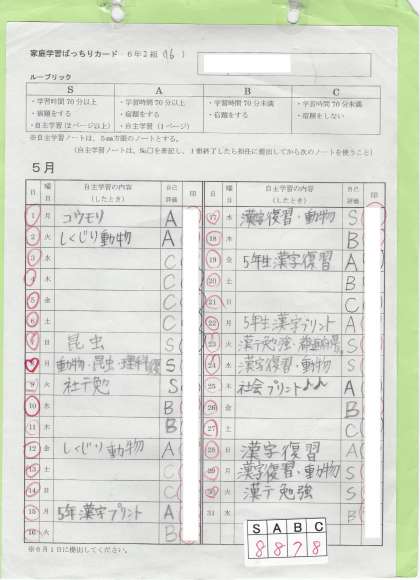 家庭学習ばっちりカード 6年2組 (16)
ルーブリック
S A B C
・学習時間70分以上 ・学習時間70分以上 ・学習時間70分未満 ・学習時間70分未満
・宿題をする ・宿題をする ・宿題をする ・宿題をしない
・自主学習(2ページ以上) ・自主学習(1ページ)
※自主学習ノートは、5㎜方眼のノートとする。
(自主学習ノートは、№を表記し、1冊終了したら担任に提出してから次のノートを使うこと)
5月
日 曜日 自主学習の内容(したとき) 自己評価 印
1 月 コウモリ A
2 火 しくじり動物 A
3 水 C
4 木 C
5 金 C
6 土 C
7 日 昆虫 S
月 動物・昆虫・理科 S
9 火 社テ勉 S
10 水 B
11 木 B
12 金 しくじり動物 A
13 土 C
14 日 C
15 月 5年漢字プリント A
16 火 B
日 曜日 自主学習の内容(したとき) 自己評価 印
17 水 漢字復習・動物 S
18 木 B
19 金 5年生漢字復習 A
20 土 B
21 日 C
22 月 5年生漢字プリント A
23 火 漢テ勉強・ S
24 水 漢字復習・動物 S
25 木 社会プリント♪♪ A
26 金 B
27 土 C
28 日 漢字復習 A
29 月 漢字復習・動物 S
30 火 漢テ勉強 S
31 水 B
S A B C
8 8 7 8
※6月1日に提出してください。